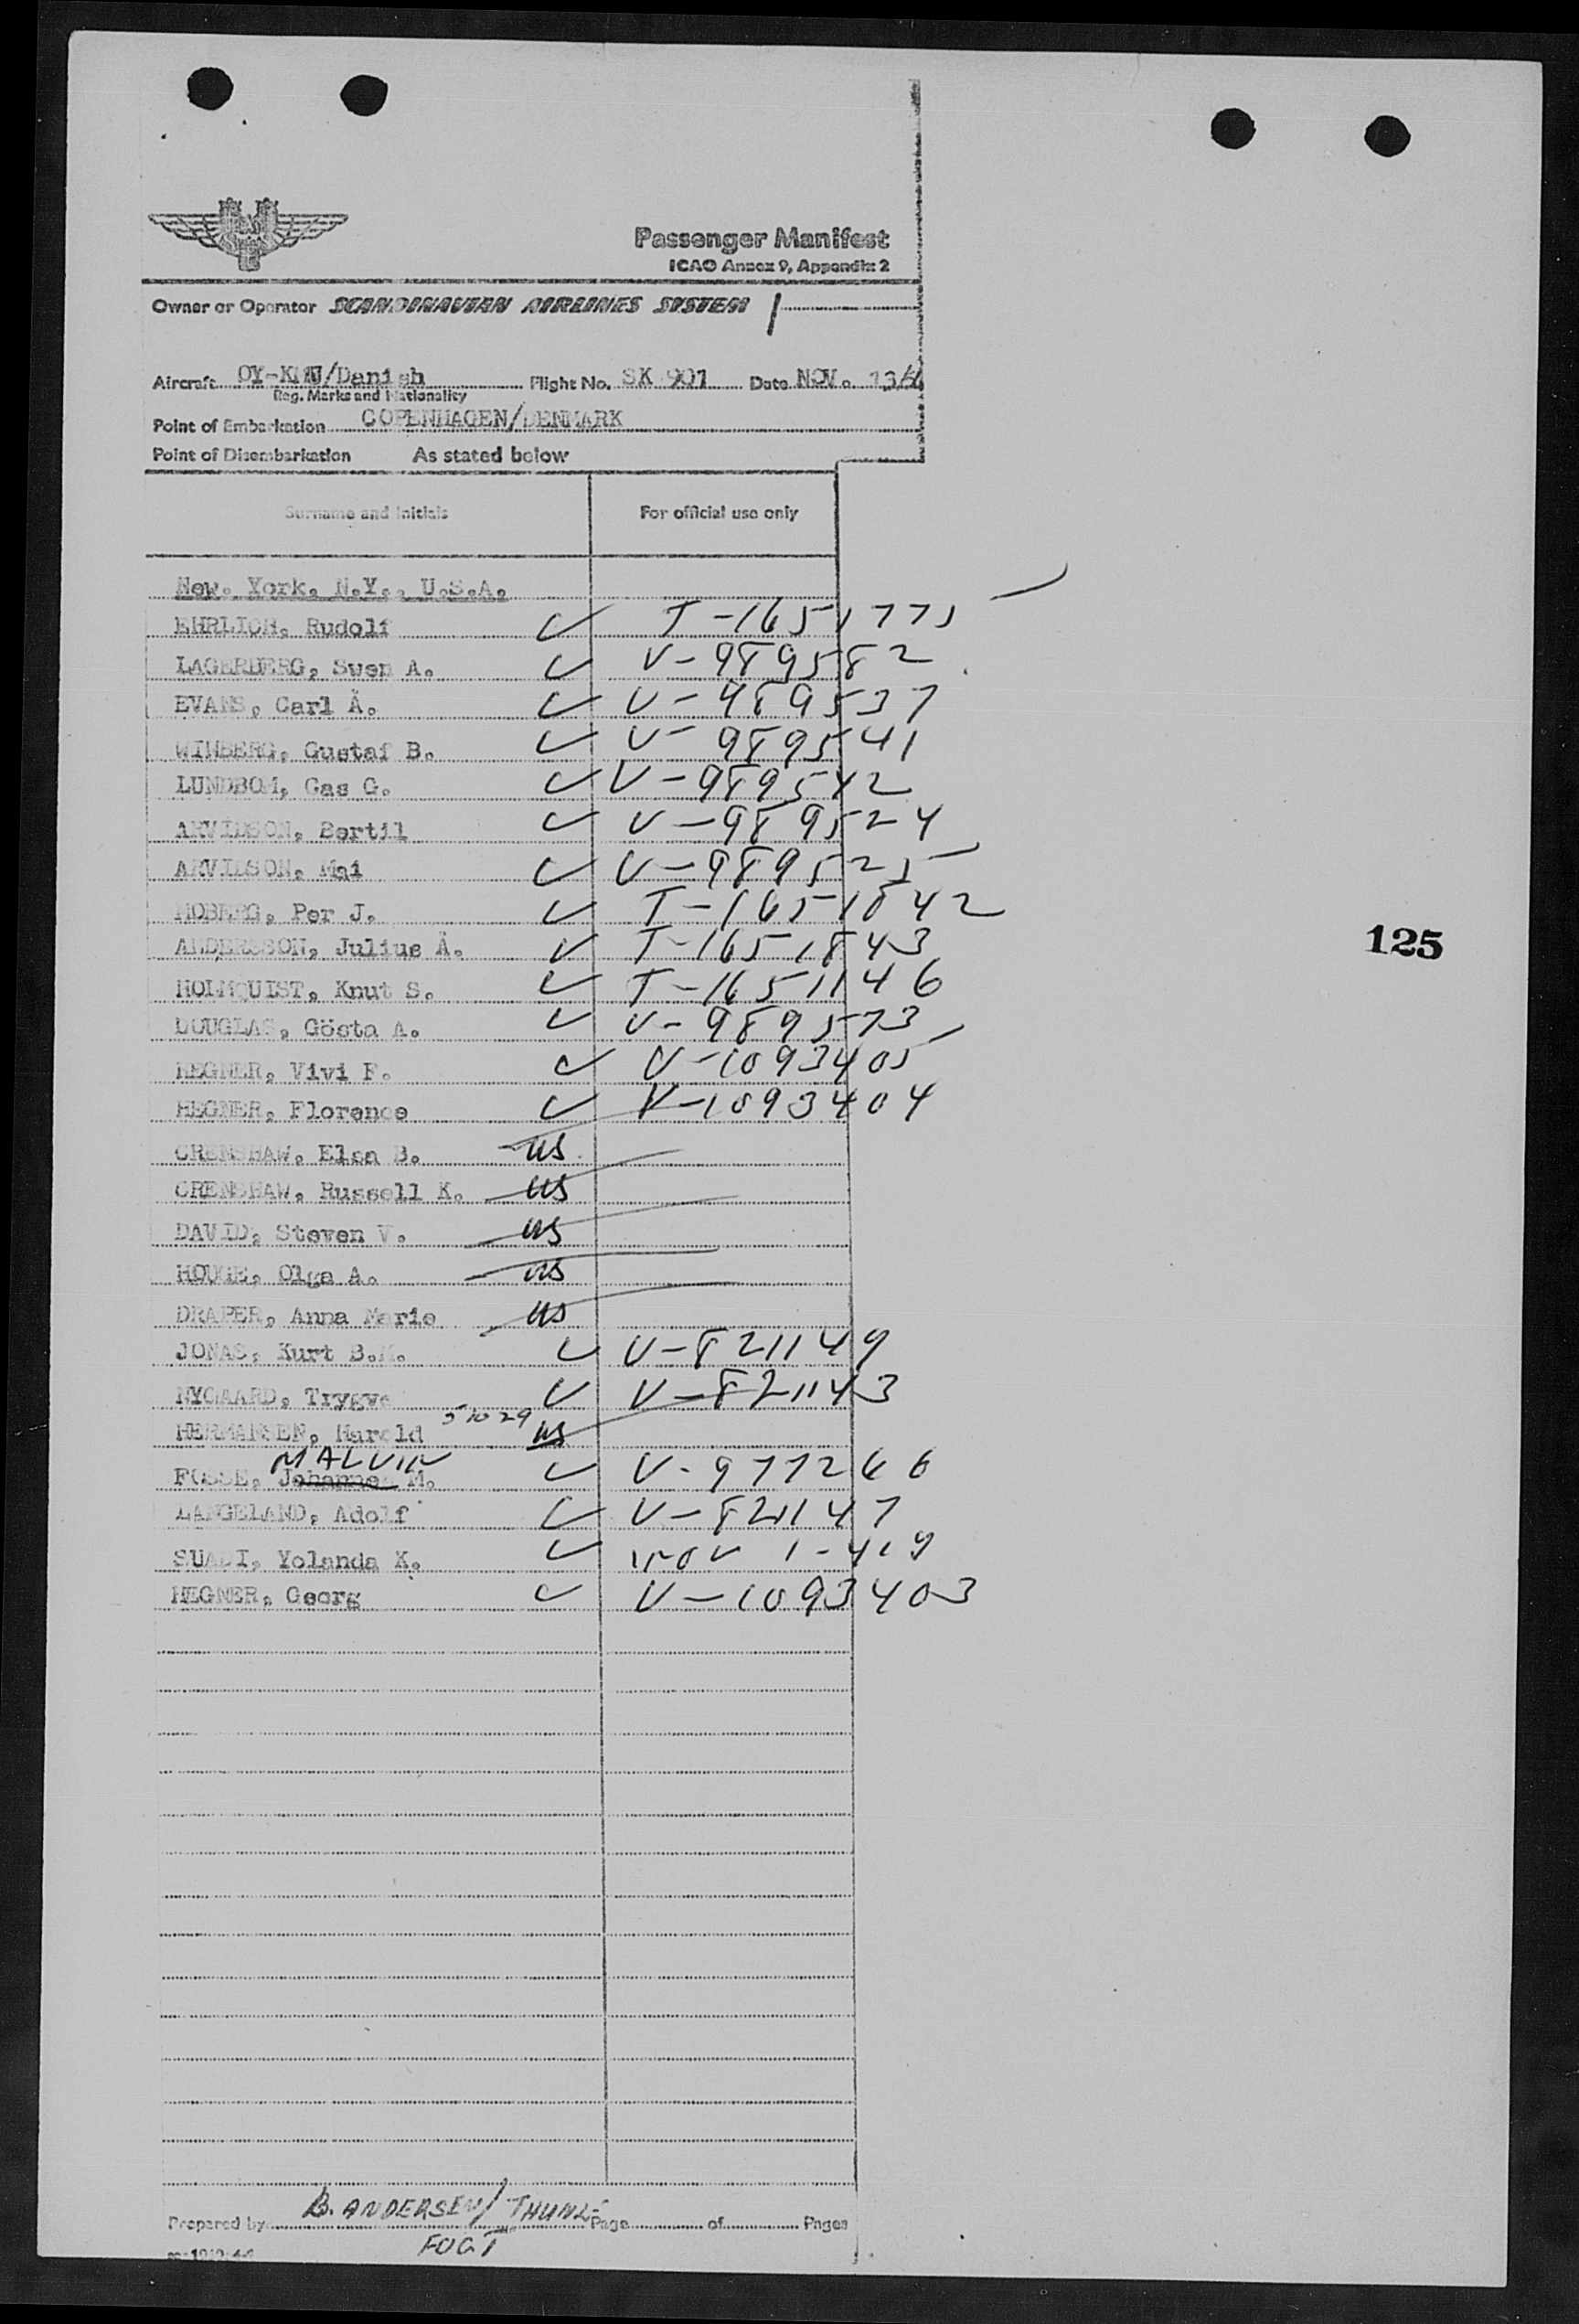 Passenger Manifest
ICAO Annex 9, Appendix 2
Owner or Operator SCANDINAVIAN AIRLINES SYSTEM
Aircraft OY- /Danish Flight No. SK 901 Date NOV. 13/
Reg. Marks and Nationality
Point of Embarkation COPENHAGEN/DENMARK
Point of Disembarkation As stated below
Surname and initials For official use only
New. York. N.Y., U.S.A.
EHRLICH, Rudolf T-1651775
LAGERBERG, Sven A. V-989582
EVANS, Carl Å. V-989537
WIMBERG, Gustaf B. V-989541
LUNDBOM, Gas G. V-989542
ARVIDSON, Bertil V-989524
ARVIDSON, Mai V-989525
MOBERG, Per J. T-1651842
ANDERSSON, Julius Å. T-1651843
125
HOLMQUIST, Knut S. T-1651146
DOUGLAS, Gösta A. V-989573
HEGNER, Vivi F. V-1093405
HEGNER, Florence V-1093404
CRENSHAW, Elsa B. US
CRENSHAW, Russell K. US
DAVID, Steven V. US
HOUGE, Olga A. US
DRAPER, Anna Marie US
JONAS, Kurt B. V-821149
NYGAARD, Trygve V-821143
51029
HERMANSEN, Harold US
MALVIN
FOSSE, Johannes M. V-977266
LANGELAND, Adolf V-821147
SUADI, Yolanda K.
HEGNER, Georg V-1093403
Prepared by B. ANDERSEN/ Page of Pages